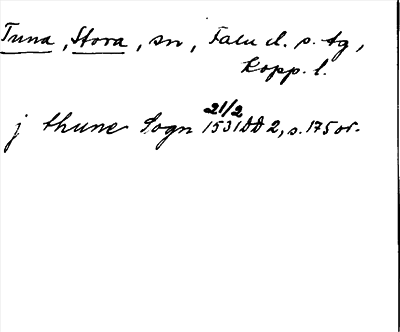 Tuna, Stora, sn, Falu d. s. tg,
Kopp. l.
21/2
j thune Sogn 1531 DD 2, s. 175 or.